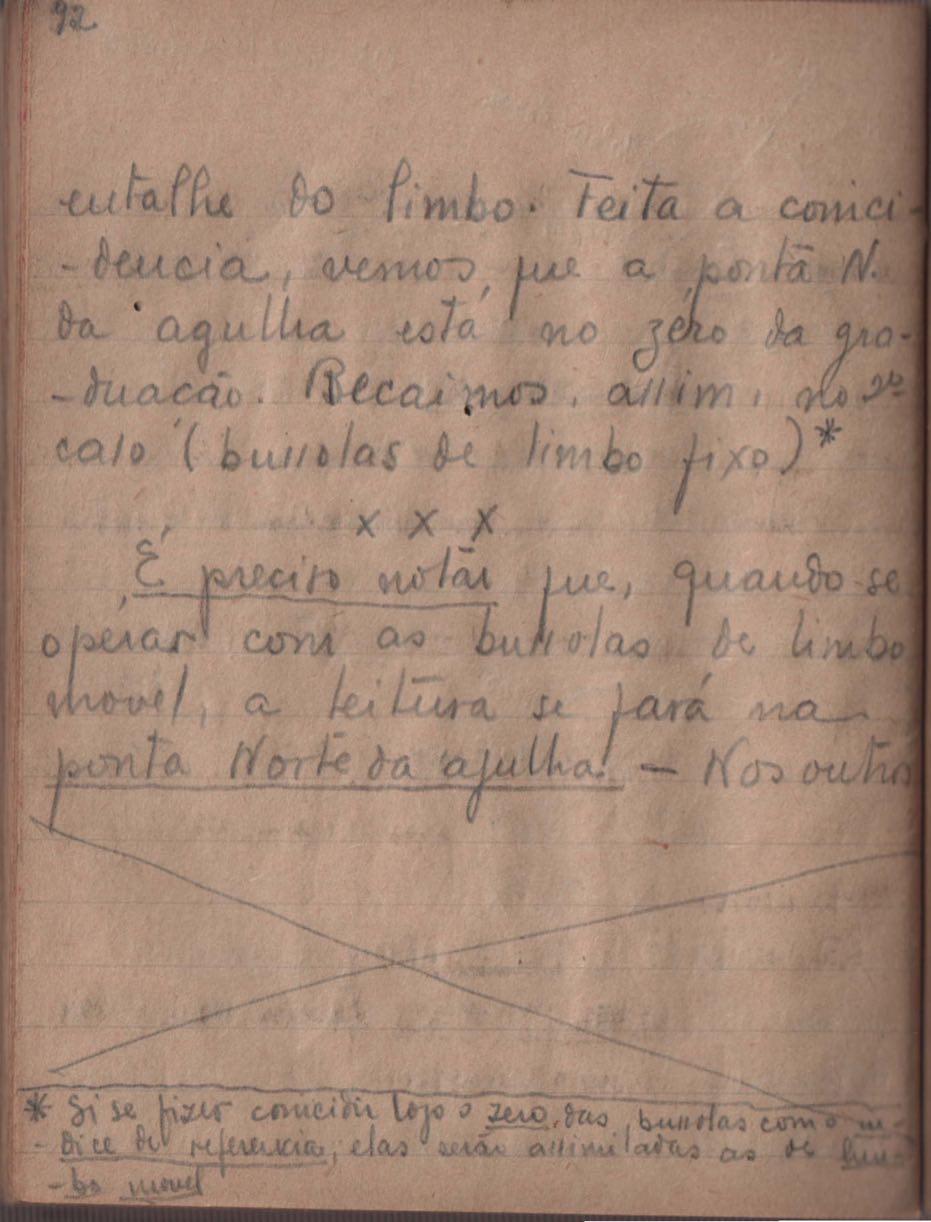 92
entalhe do limbo. Feita a coinci-
-dencia, vemos, que a ponta N.
da agulha está no zéro da gra-
-duação. Recaimos, assim, no 2º
caso (bussolas de limbo fixo)*
x x x
É preciso notar que, quando se
operar com as bussolas de limbo
movel, a leitura se fará na
ponta Norte da agulha. — Nos outros
* Si se fizer coincidir logo o zero das bussolas com o in-
-dice de referencia, elas serão assimiladas as de lim-
-bo movel